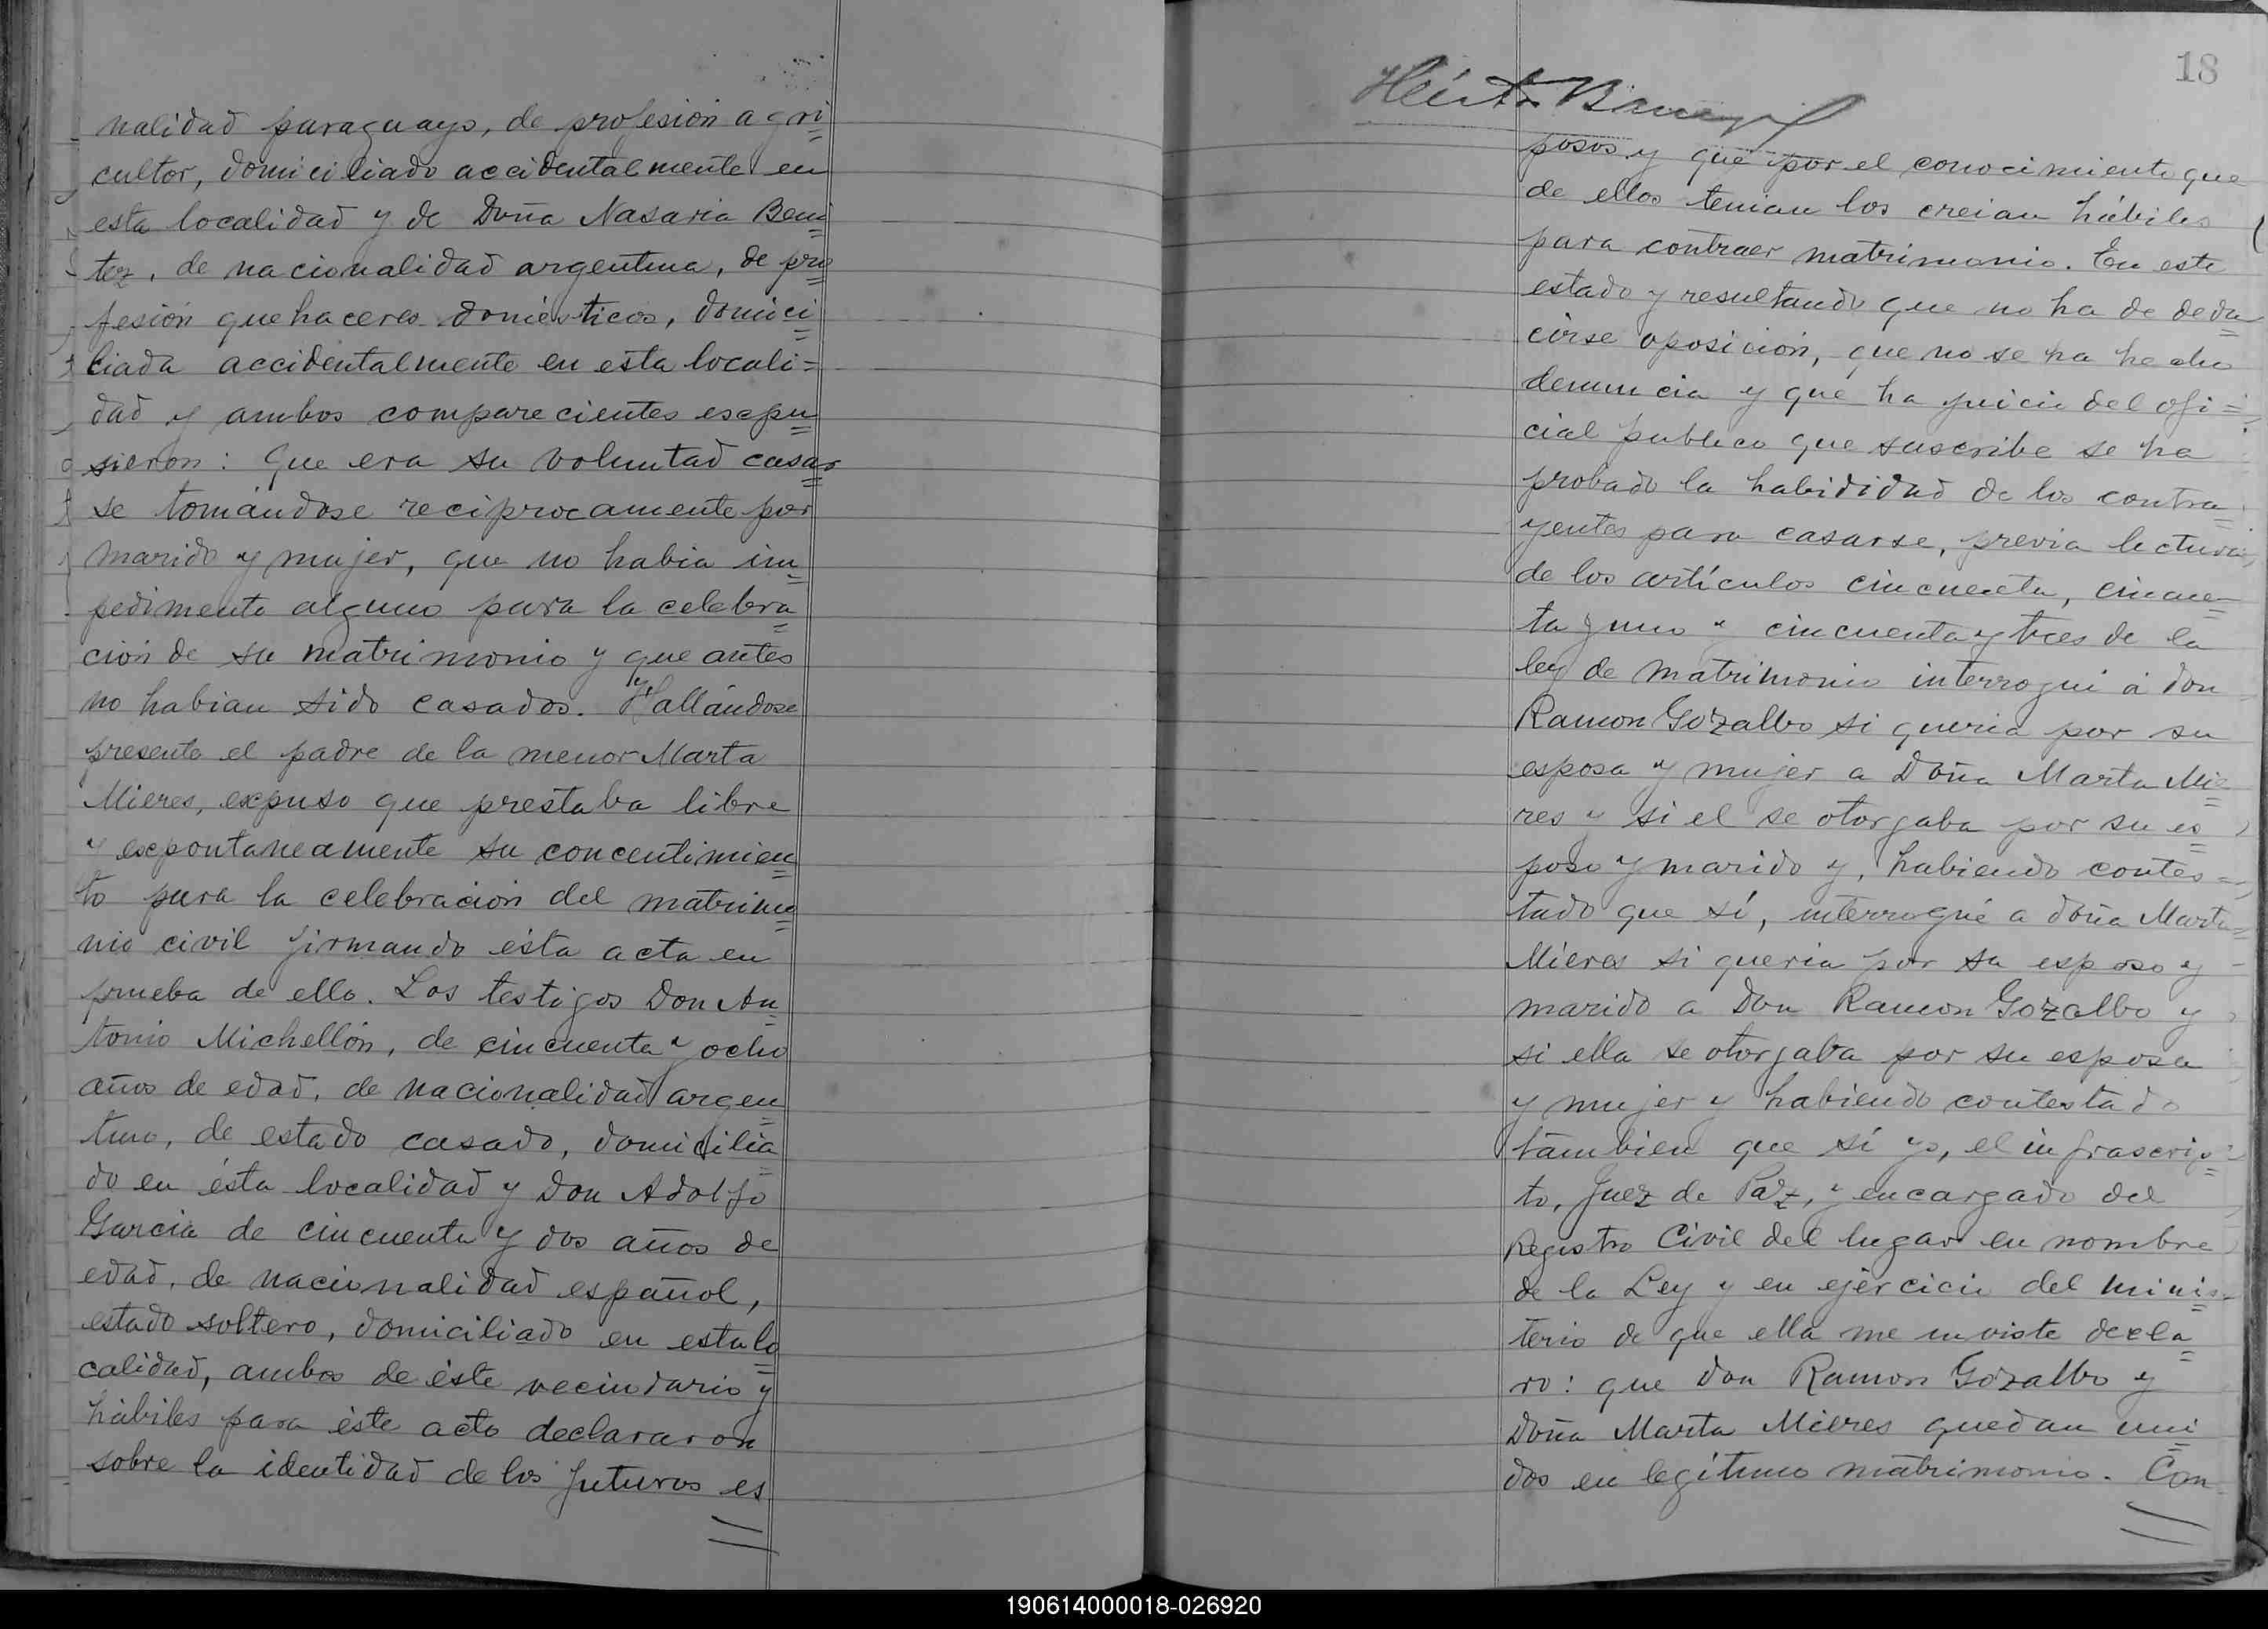 nalidad paraguayo, de profesión agri=
cultor, domiciliado accidentalmente en
esta localidad y de Doña Nasaria Beni=
tez, de nacionalidad argentina, de pro
fesión quehaceres domésticos, domici=
liada accidentalmente en esta locali=
dad y ambos comparecientes expu=
sieron: Que era su voluntad casar=
se tomándose reciprocamente por
marido y mujer, que no habia im=
pedimento alguno para la celebra=
ción de su matrimonio y que antes
no habian sido casados. Hallándose
presente el padre de la menor Marta
Mieres, expuso que prestaba libre
y expontaneamente su concentimien=
to para la celebración del matrimo=
nio civil firmando ésta acta en
prueba de ello. Los testigos Don An=
tonio Michellón, de cincuenta y ocho
años de edad, de nacionalidad argen=
tino, de estado casado, domicilia=
do en ésta localidad y Don Adolfo
Garcia de cincuenta y dos años de
edad, de nacionalidad español,
estado soltero, domiciliado en esta lo=
calidad, ambos de éste vecindario y
hábiles para éste acto declararon
sobre la identidad de los futuros es=
18
Héctor
posos y que por el conocimiento que
de ellos tenian los creian hábiles
para contraer matrimonio. En este
estado y resultando que no ha de dedu=
cirse oposición, que no se ha hecho
denuncia y que ha juicio del ofi=
cial publico que suscribe se ha
probado la habididad de los contra=
yentes para casarse, previa lectura
de los artículos cincuenta, cincuen=
ta y uno y cincuenta y tres de la
ley de matrimonio interrogui á don
Ramon Gozalbo si queria por su
esposa y mujer a Doña Marta Mie=
res y si el se otorgaba por su es=
poso y marido y, habiendo contes=
tado que sí, interrogué a doña Marta=
Mieres si queria por su esposo y
marido a Don Ramon Gozalbo y
si ella se otorgaba por su esposa
y mujer y habiendo contestado
tambien que sí yo, el infrascrip=
to, Juez de Paz, y encargado del
Registro Civil del lugar en nombre
de la Ley y en ejercicio del minis=
terio de que ella me inviste decla=
ro: que don Ramon Gozalbo y
Doña Marta Mieres quedan uni=
dos en legítimo matrimonio. Con=
190614000018-026920